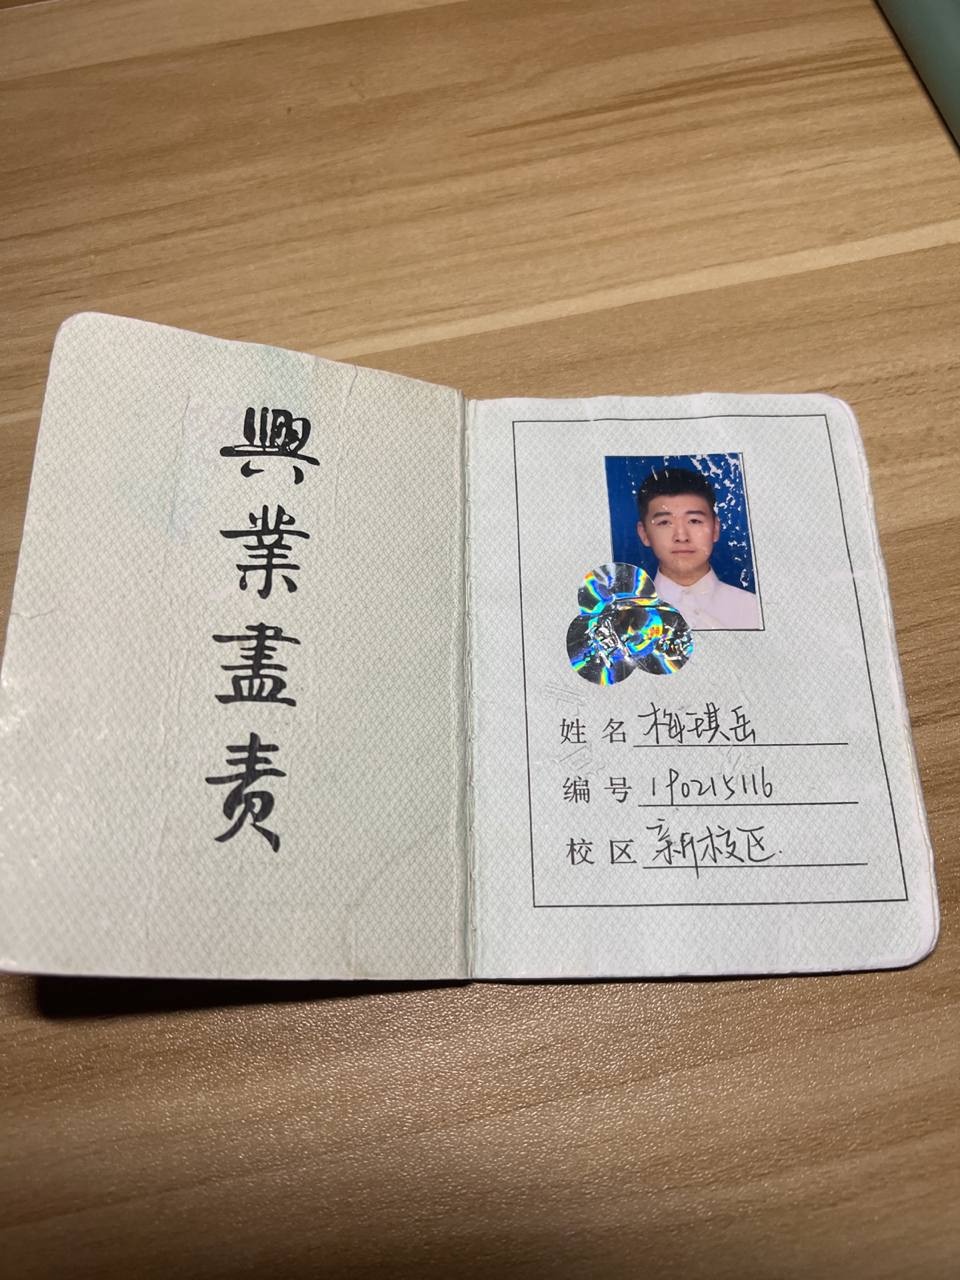 興業盡责
姓名 梅琪岳
编号 190215116
校区 新校区.